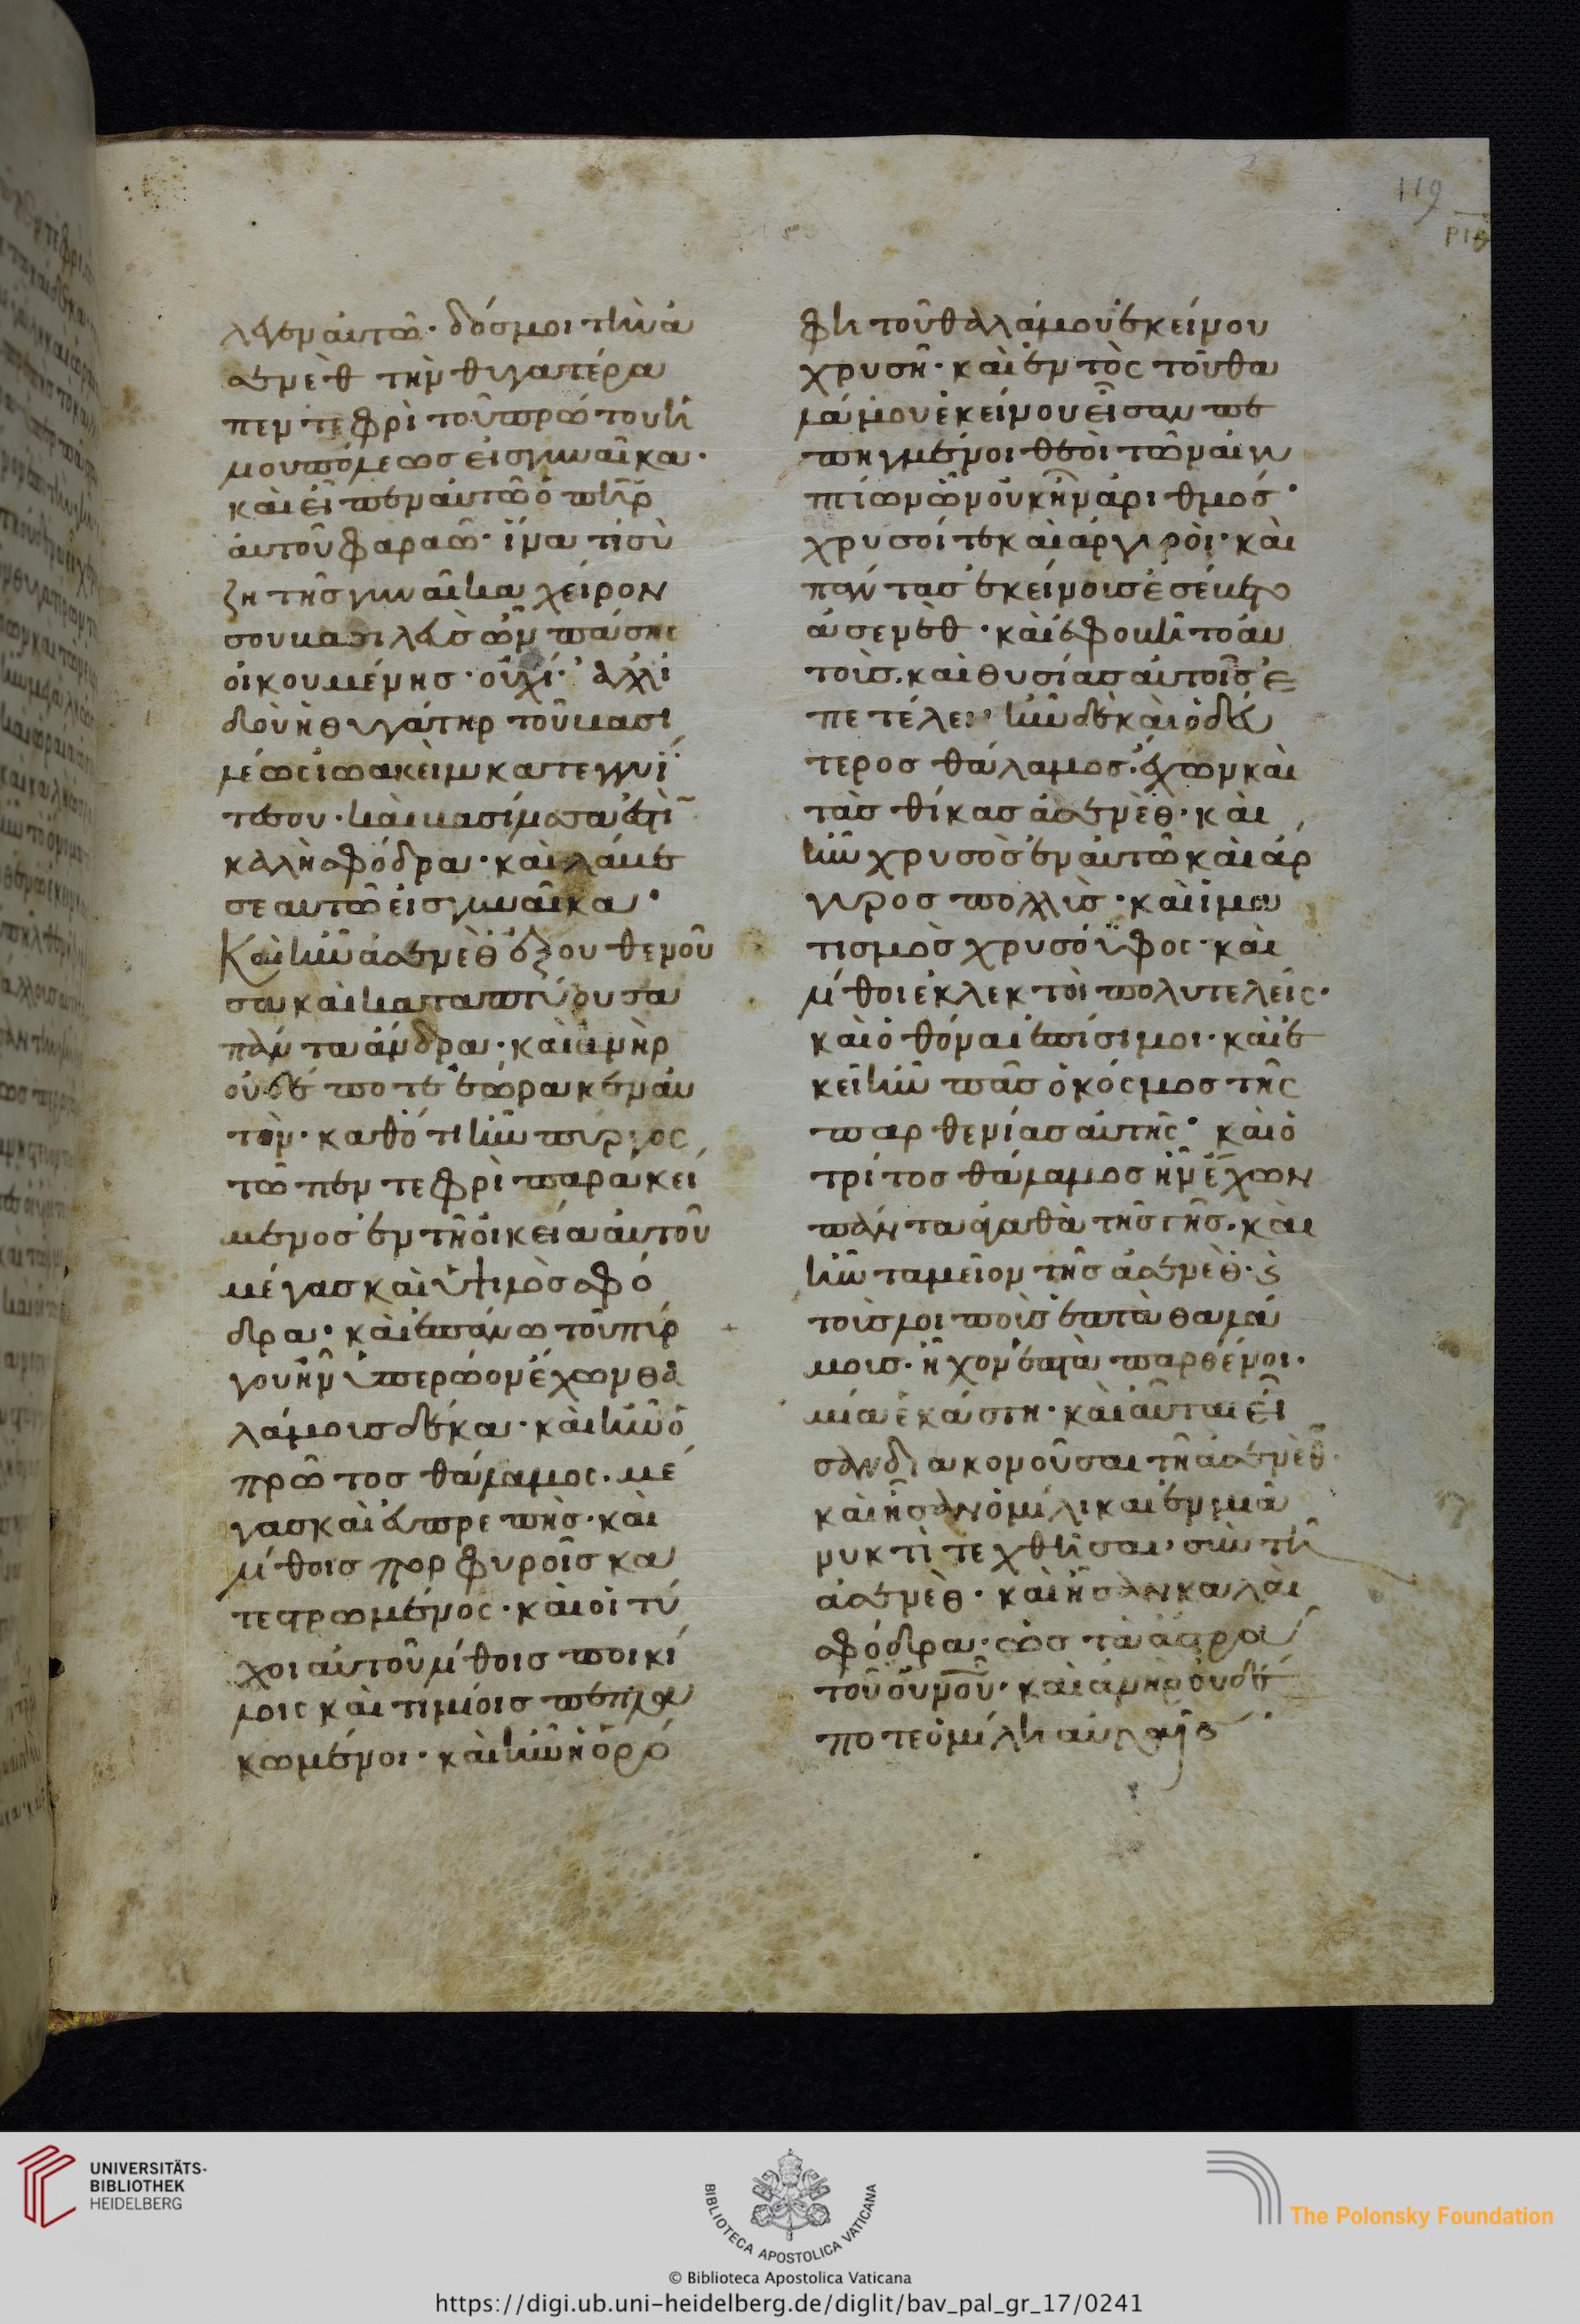 119
ριθ
λεγεν αὐτῶ· δός μοι τὴν ἀ
σενὲθ τὴν θυγατέρα
πεντεφρὶ τοῦ πρώτου ἡ
λιουπόλεως εἰς γυναῖκα·
καὶ εἶπεν αὐτῶ ὁ πὴρ
αὐτοῦ φαραώ· ἵνα τί σὺ
ζητῆς γυναῖκα χείρον
σου βασιλεὺς ὢν πάσης
οἰκουμένης· οὐχί· ἀλλ' ἰ
δοὺ ἡ θυγάτηρ τοῦ βασι
λέως ἰωακεὶμ κατεγγύ
τε σου· καὶ βασίλισα ἐστὶ
καλὴ σφόδρα· καὶ λάβε
σεαυτῶ εἰς γυναῖκα·
Καὶ ἦν ἀσενὲθ ἐξουθενοῦ
σα καὶ καταπτύουσα
πάντα ἄνδρα· καὶ ἀνὴρ
οὐδέποτε ἑώρακεν αὐ
τὸν· καθότι ἦν πύργος
τῶ πεντεφρὶ παρακεί
μενος ἐν τῆ οἰκεία αὐτοῦ
μέγας καὶ ὑψιλὸς σφό
δρα· καὶ ἐπάνω τοῦ πύρ
γου ἦν ὑπερῶον ἔχων θα
λάμους δέκα· καὶ ἦν ὁ
πρῶτος θάλαμος· μέ
γας καὶ εὐπρεπὴς· καὶ
λίθοις πορφυροῖς κα
τεστρωμένος· καὶ οἱ τύ
χοι αὐτοῦ λίθοις ποικί
λοις καὶ τιμίοις πεπλα
κωμένοι· καὶ ἦν ἡ ὀρό
φη τοῦ θαλάμου ἐκείνου
χρυσῆ· καὶ ἐντὸς τοῦ θα
λάμου ἐκείνου εἶσαν πε
πηγμένοι θεοὶ τῶν αἰγυ
πτίων ὧν οὐκ ἦν ἀριθμός·
χρυσοί τε καὶ ἀργυροὶ· καὶ
πάντας ἐκείνοις ἐσέβετο
ἀσενὲθ· καὶ ἐφοβῆτο αὐ
τοὺς· καὶ θυσίας αὐτοῖς ἐ
πετέλει· ἦν δὲ καὶ ὁ δεύ
τερος θάλαμος· ἔχων καὶ
τὰς θίκας ἀσενὲθ· καὶ
ἦν χρυσὸς ἐν αὐτῶ καὶ ἄρ
γυρος πολλὺς· καὶ ἱμα
τισμὸς χρυσόϋφος· καὶ
λίθοι ἐκλεκτοὶ πολυτελεῖς·
καὶ ὀθόναι ἐπίσιμοι· καὶ ἐ
κεῖ ἦν πᾶς ὁ κόσμος τῆς
παρθενίας αὐτῆς· καὶ ὁ
τρίτος θάλαμος ἦν ἔχων
πάντα ἀγαθὰ τῆς γῆς· καὶ
ἦν ταμεῖον τῆς ἀσενὲθ·
τοὺς λοιποὺς ἑπτὰ θαλά
μους· ἦχον ἑπτὰ παρθένοι·
μία ἑκάστη· καὶ αὗται εἶ
σαν διακονοῦσαι τῆ ἀσενὲθ·
καὶ ἦσαν ὁμίλικαι ἐν μιᾶ
νυκτὶ τεχθῆσαι σὺν τῆ
ἀσενὲθ· καὶ ἦσαν καλαὶ
σφόδρα· ὡς τὰ ἄστρα
τοῦ οὐνοῦ· καὶ ἀνὴρ οὐδέ
ποτε ὁμίλη αὐταῖς
UNIVERSITÄTS-
BIBLIOTHEK
HEIDELBERG
BIBLIOTECA APOSTOLICA VATICANA
The Polonsky Foundation
© Biblioteca Apostolica Vaticana
https://digi.ub.uni-heidelberg.de/diglit/bav_pal_gr_17/0241